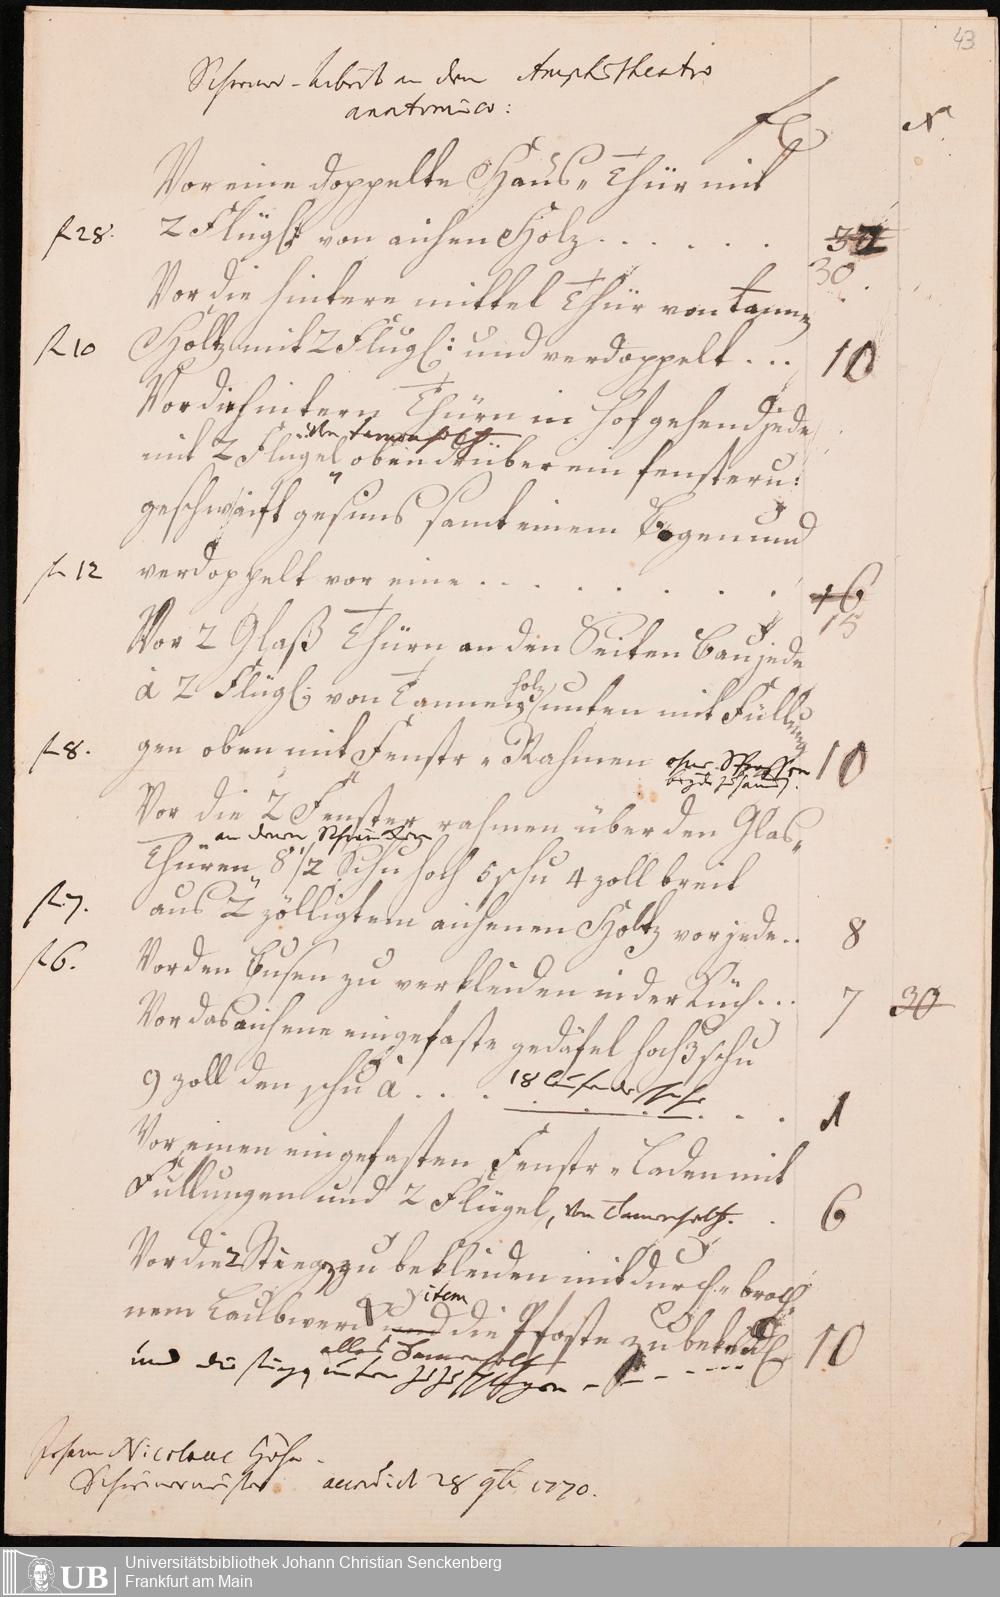 43
Schreiner-Arbeit in dem Amphitheatro
anatomico:
fl
x
Vor eine doppelte Hauß Thür mit
fl 28. 2 Flügl: von aichen Holz . . . . . . 32
30
Vor die hintere mittel Thür von tannen
fl 10 Holtz mit 2 Flügl: und verdoppelt . . . 10
Vor die hintern Thürn in Hof gehend jede
von tannenholtz
mit 2 Flügel oben drüber ein fenster u:
geschwäift gesims samt einem Bogen und
fl 12 verdoppelt vor eine . . . . . . . 16
15
Vor 2 Glaß Thürn an den Seiten Bau jede
à 2 Flügl: von Tannen holz unten mit Füllun
fl 8. gen oben mit Fenstr Rahmen ohne Sprossen 10
beyde zusamen.
Vor die 2 Fenster rahmen über den Glas
an denen
Thüren 8 1/2 Schu hoch 5 schu 4 zoll breit
fl 7. aus 2 zölligtem aichenen Holtz vor jede . . 8
fl 6. Vor den Busen zu verkleiden in der Küch . . . 7 30
Vor das aichene eingefaste gedäfel hoch 3 schu
9 zoll den schu à . . . 18 laufende schuh . . . 1
Vor einen eingefasten Fenstr Laden mit
Füllungen und 2 Flügel, von Tannenholtz. . 6
Vor die 2 Stiegen zu bekleiden mit durch broch
item
nem Laubwerck und die Pfoste zu bekleidl 10
alles Tannenholtz
und die stiege unten
Johann Nicolaus Höhn
Schreinermeister accordirt 28 9br. 1770.
UB
Universitätsbibliothek Johann Christian Senckenberg
Frankfurt am Main